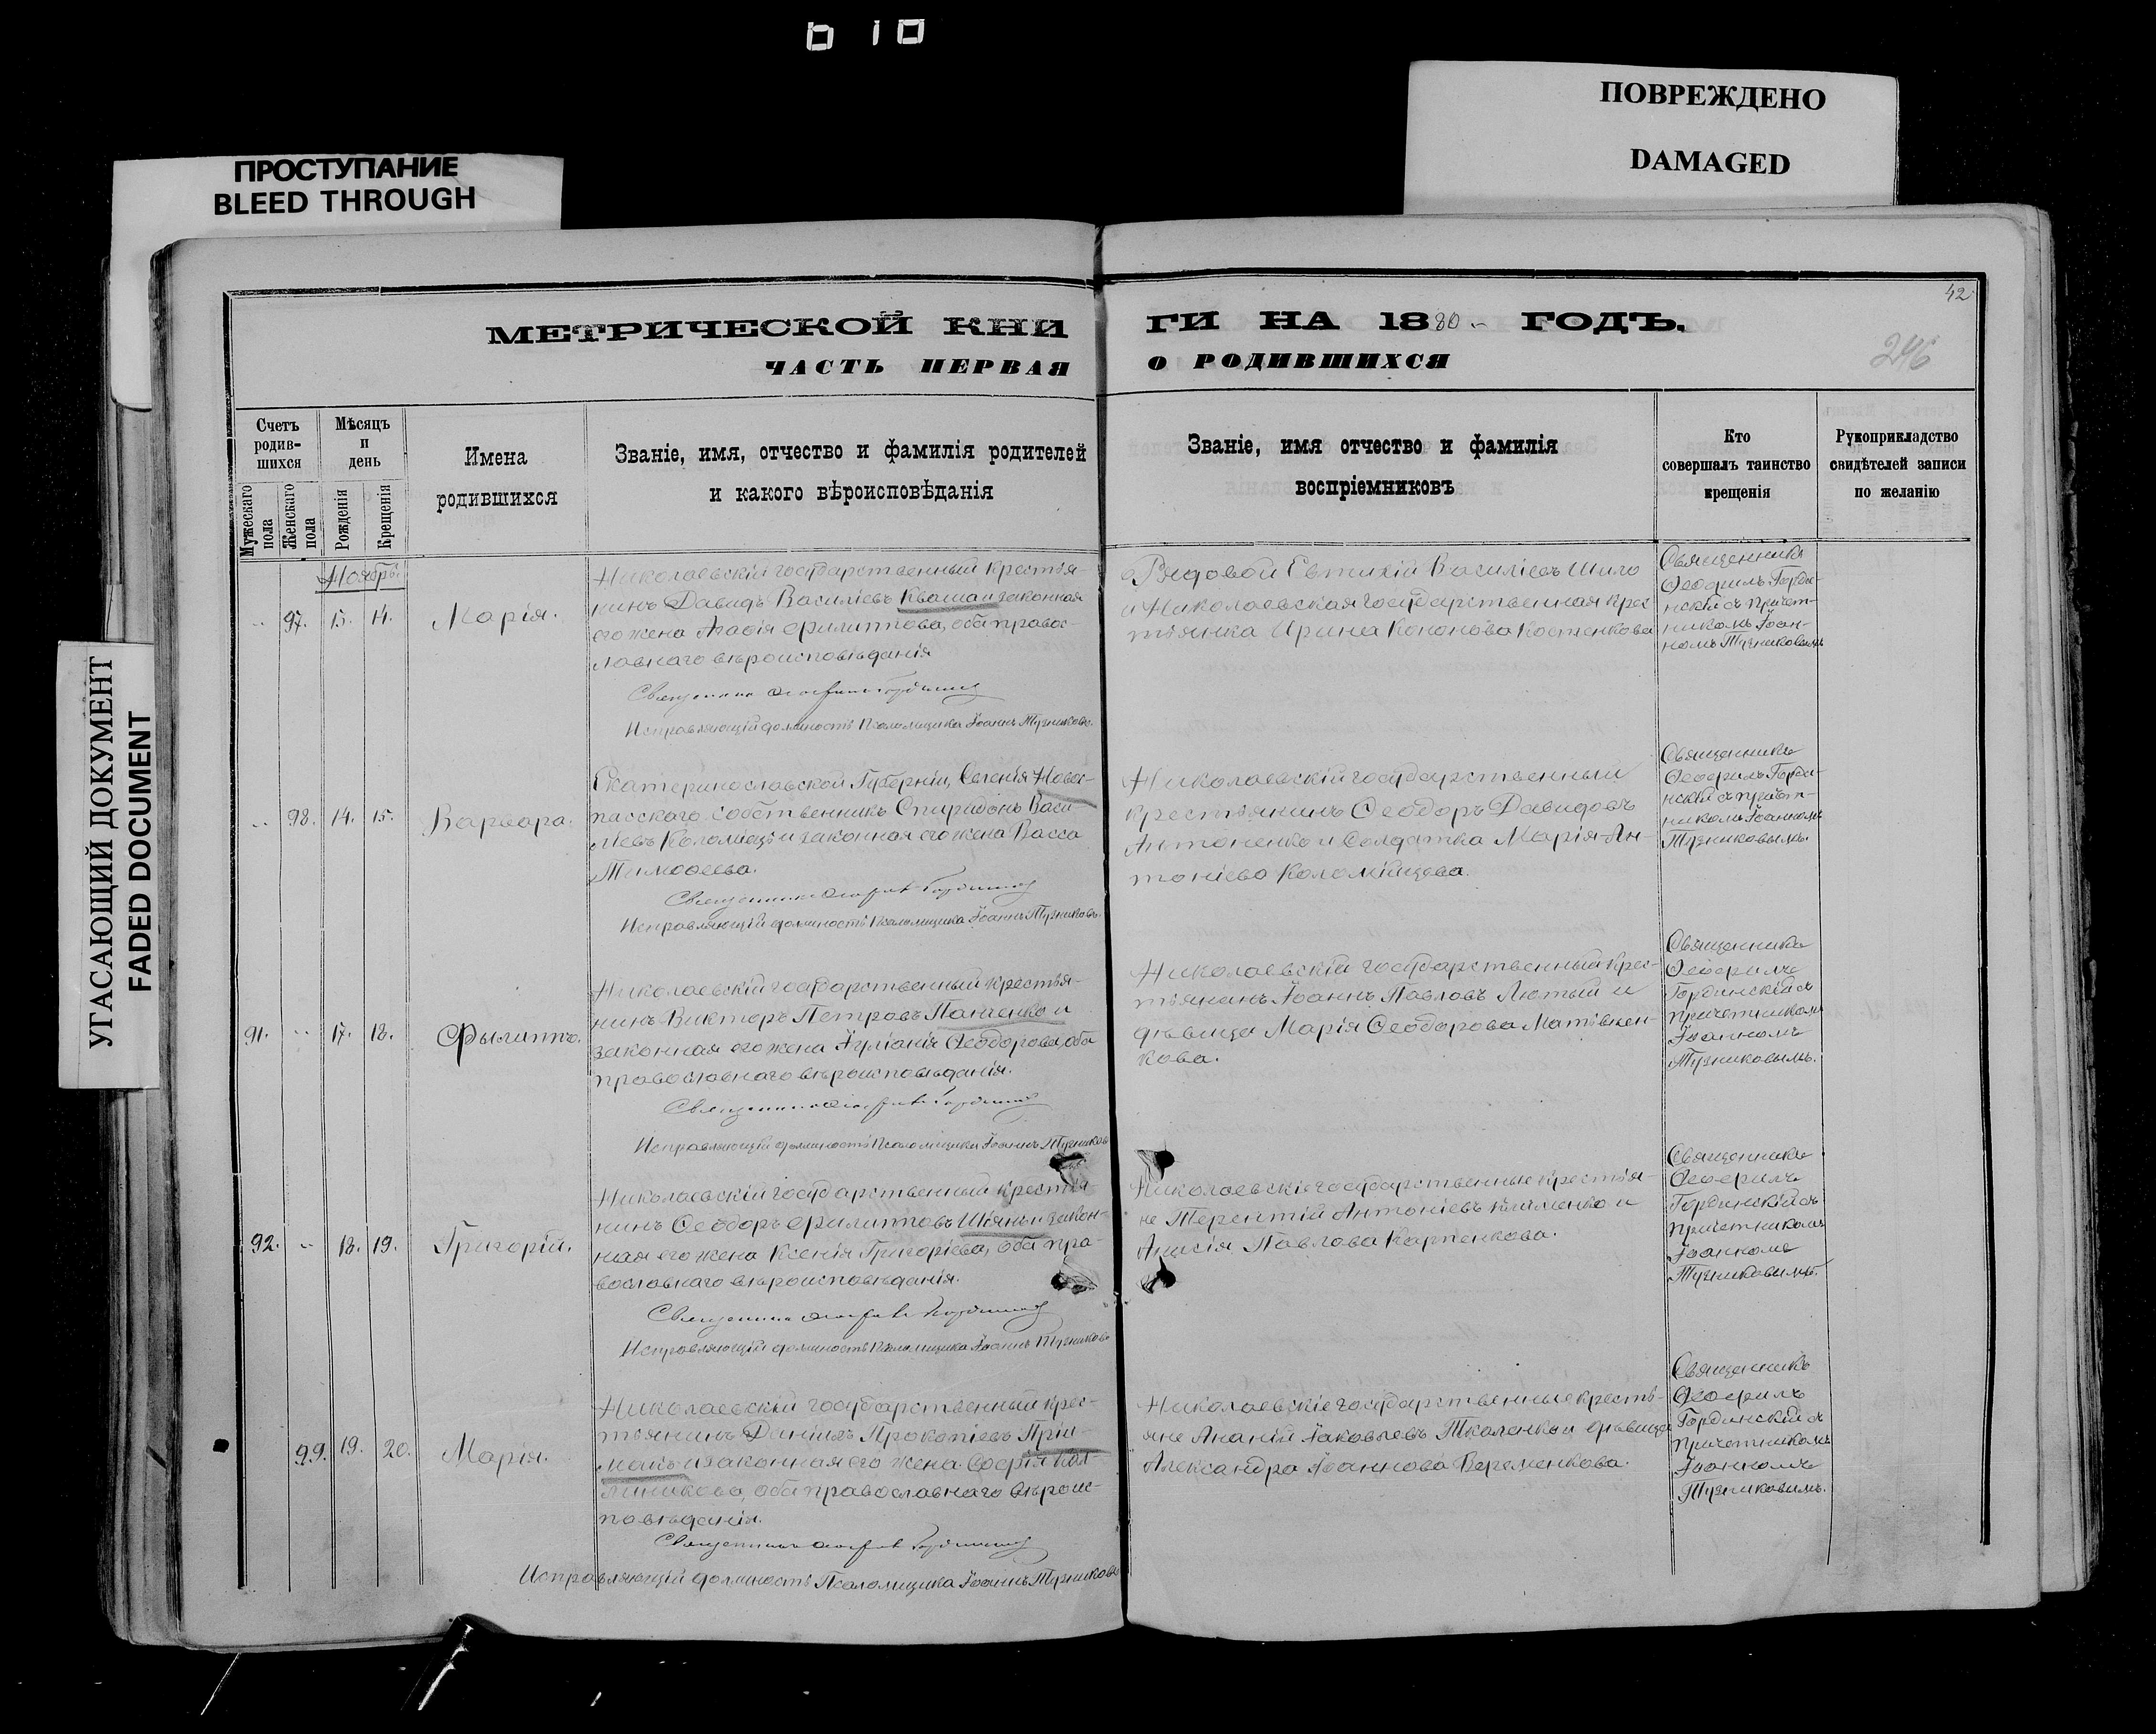 ПОВРЕЖДЕНО
DAMAGED
ПРОСТУПАНИЕ
BLEED THROUGH
УГАСАЮЩИЙ ДОКУМЕНТ
FADED DOCUMENT
42
246
МЕТРИЧЕСКОЙ КНИ
ГИ НА 1880 ГОДЪ.
ЧАСТЬ ПЕРВАЯ
О РОДИВШИХСЯ
Счетъ родив-шихся
Мужескаго пола
Женскаго пола
Мѣсяцъ и день
Рожденія
Крещенія
Имена родившихся
Званіе, имя, отчество и фамилія родителей
и какого вѣроисповѣданія
Званіе, имя отчество и фамилія
воспріемниковъ
Кто
совершалъ таинство
крещенія
Рукоприкладство
свидѣтелей записи
по желанію
Ноябрь
97. 13. 14. Марія.
Николаевскій государственный крестья-
нинъ Давидъ Василіевъ Кваша и законная
его жена Агафія Филиппова, оба правос-
лавнаго вѣроисповѣданія
Исправляющій должность Псаломщика Іоаннъ
Рядовой Евтихій Василіевъ Шило
и Николаевская государственная крес
тьянка Ирина Кононова Костенкова
Священникъ
Ѳеофилъ Горди-
нскій съ причет-
никомъ Іоан-
номъ
98. 14. 15. Варвара.
Екатеринославской Губерніи, Селенія Новос-
пасскаго собственникъ Спиридонъ Васи
ліевъ Коломіецъ и законная его жена Васса
Тимоѳеева.
Исправляющій должность Псаломщика Іоаннъ
Николаевскій государственный
крестьянинъ Ѳеодоръ Давидовъ
Антоненко и Солдатка Марія Ан-
тоніева Коломійцева.
Священникъ
Ѳеофилъ Горди-
нскій съ причет-
никомъ Іоанномъ
91. 17. 18. Филиппъ.
Николаевскій государственный крестья-
нинъ Викторъ Петровъ Панченко и
законная его жена Іуліанія Ѳеодорова, оба
православнаго вѣроисповѣданія.
Исправляющій должность Псаломщика Іоаннъ
Николаевскій государственный крес-
тьянинъ Іоаннъ Павловъ Лютый и
дѣвица Марія Ѳеодорова Матвіен-
кова.
Священникъ
Ѳеофилъ
Гординскій съ
причетникомъ
Іоанномъ
92. 18. 19. Григорій.
Николаевскій государственный крестья-
нинъ Ѳеодоръ Филипповъ и закон-
ная его жена Ксенія Григоріева, оба пра-
вославнаго вѣроисповѣданія.
Исправляющій должность Псаломщика Іоаннъ
Николаевскіе государственные крестья-
не Терентій Антоніевъ Клименко и
Анисія Павлова Карпенкова.
Священникъ
Ѳеофилъ
Гординскій съ
причетникомъ
Іоанномъ
99. 19. 20. Марія.
Николаевскій государственный крес-
тьянинъ Даніилъ Прокопіевъ Прій-
макъ и законная его жена Софія
оба православнаго вѣроис-
повѣданія.
Исправляющій должность Псаломщика Іоаннъ
Николаевскіе государственные кресть-
яне Ананій Іаковлевъ Ткаленко и дѣвица
Александра Іоаннова Веременкова.
Священникъ
Ѳеофилъ
Гординскій съ
причетникомъ
Іоанномъ